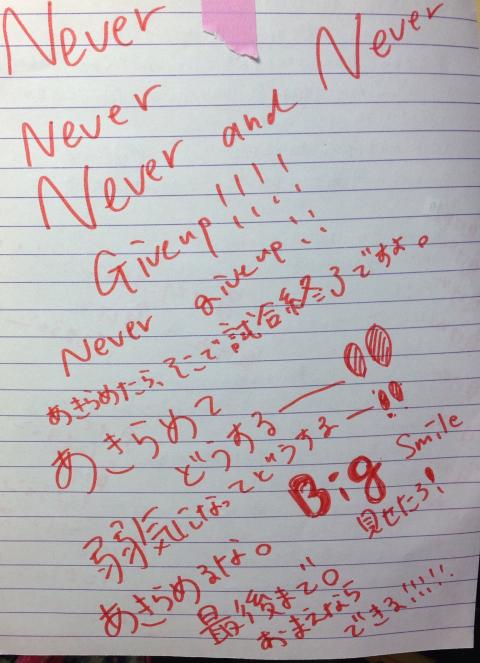 Never
Never
Never and Never
Give up!!!!
Never give up!!
あきらめたら、そこで試合終了ですよ。
あきらめて
どうするー!!
弱気になってどうするー!!
Big Smile
見せたろ!
あきらめるな。
最後まで。
おまえなら
できる!!!!!